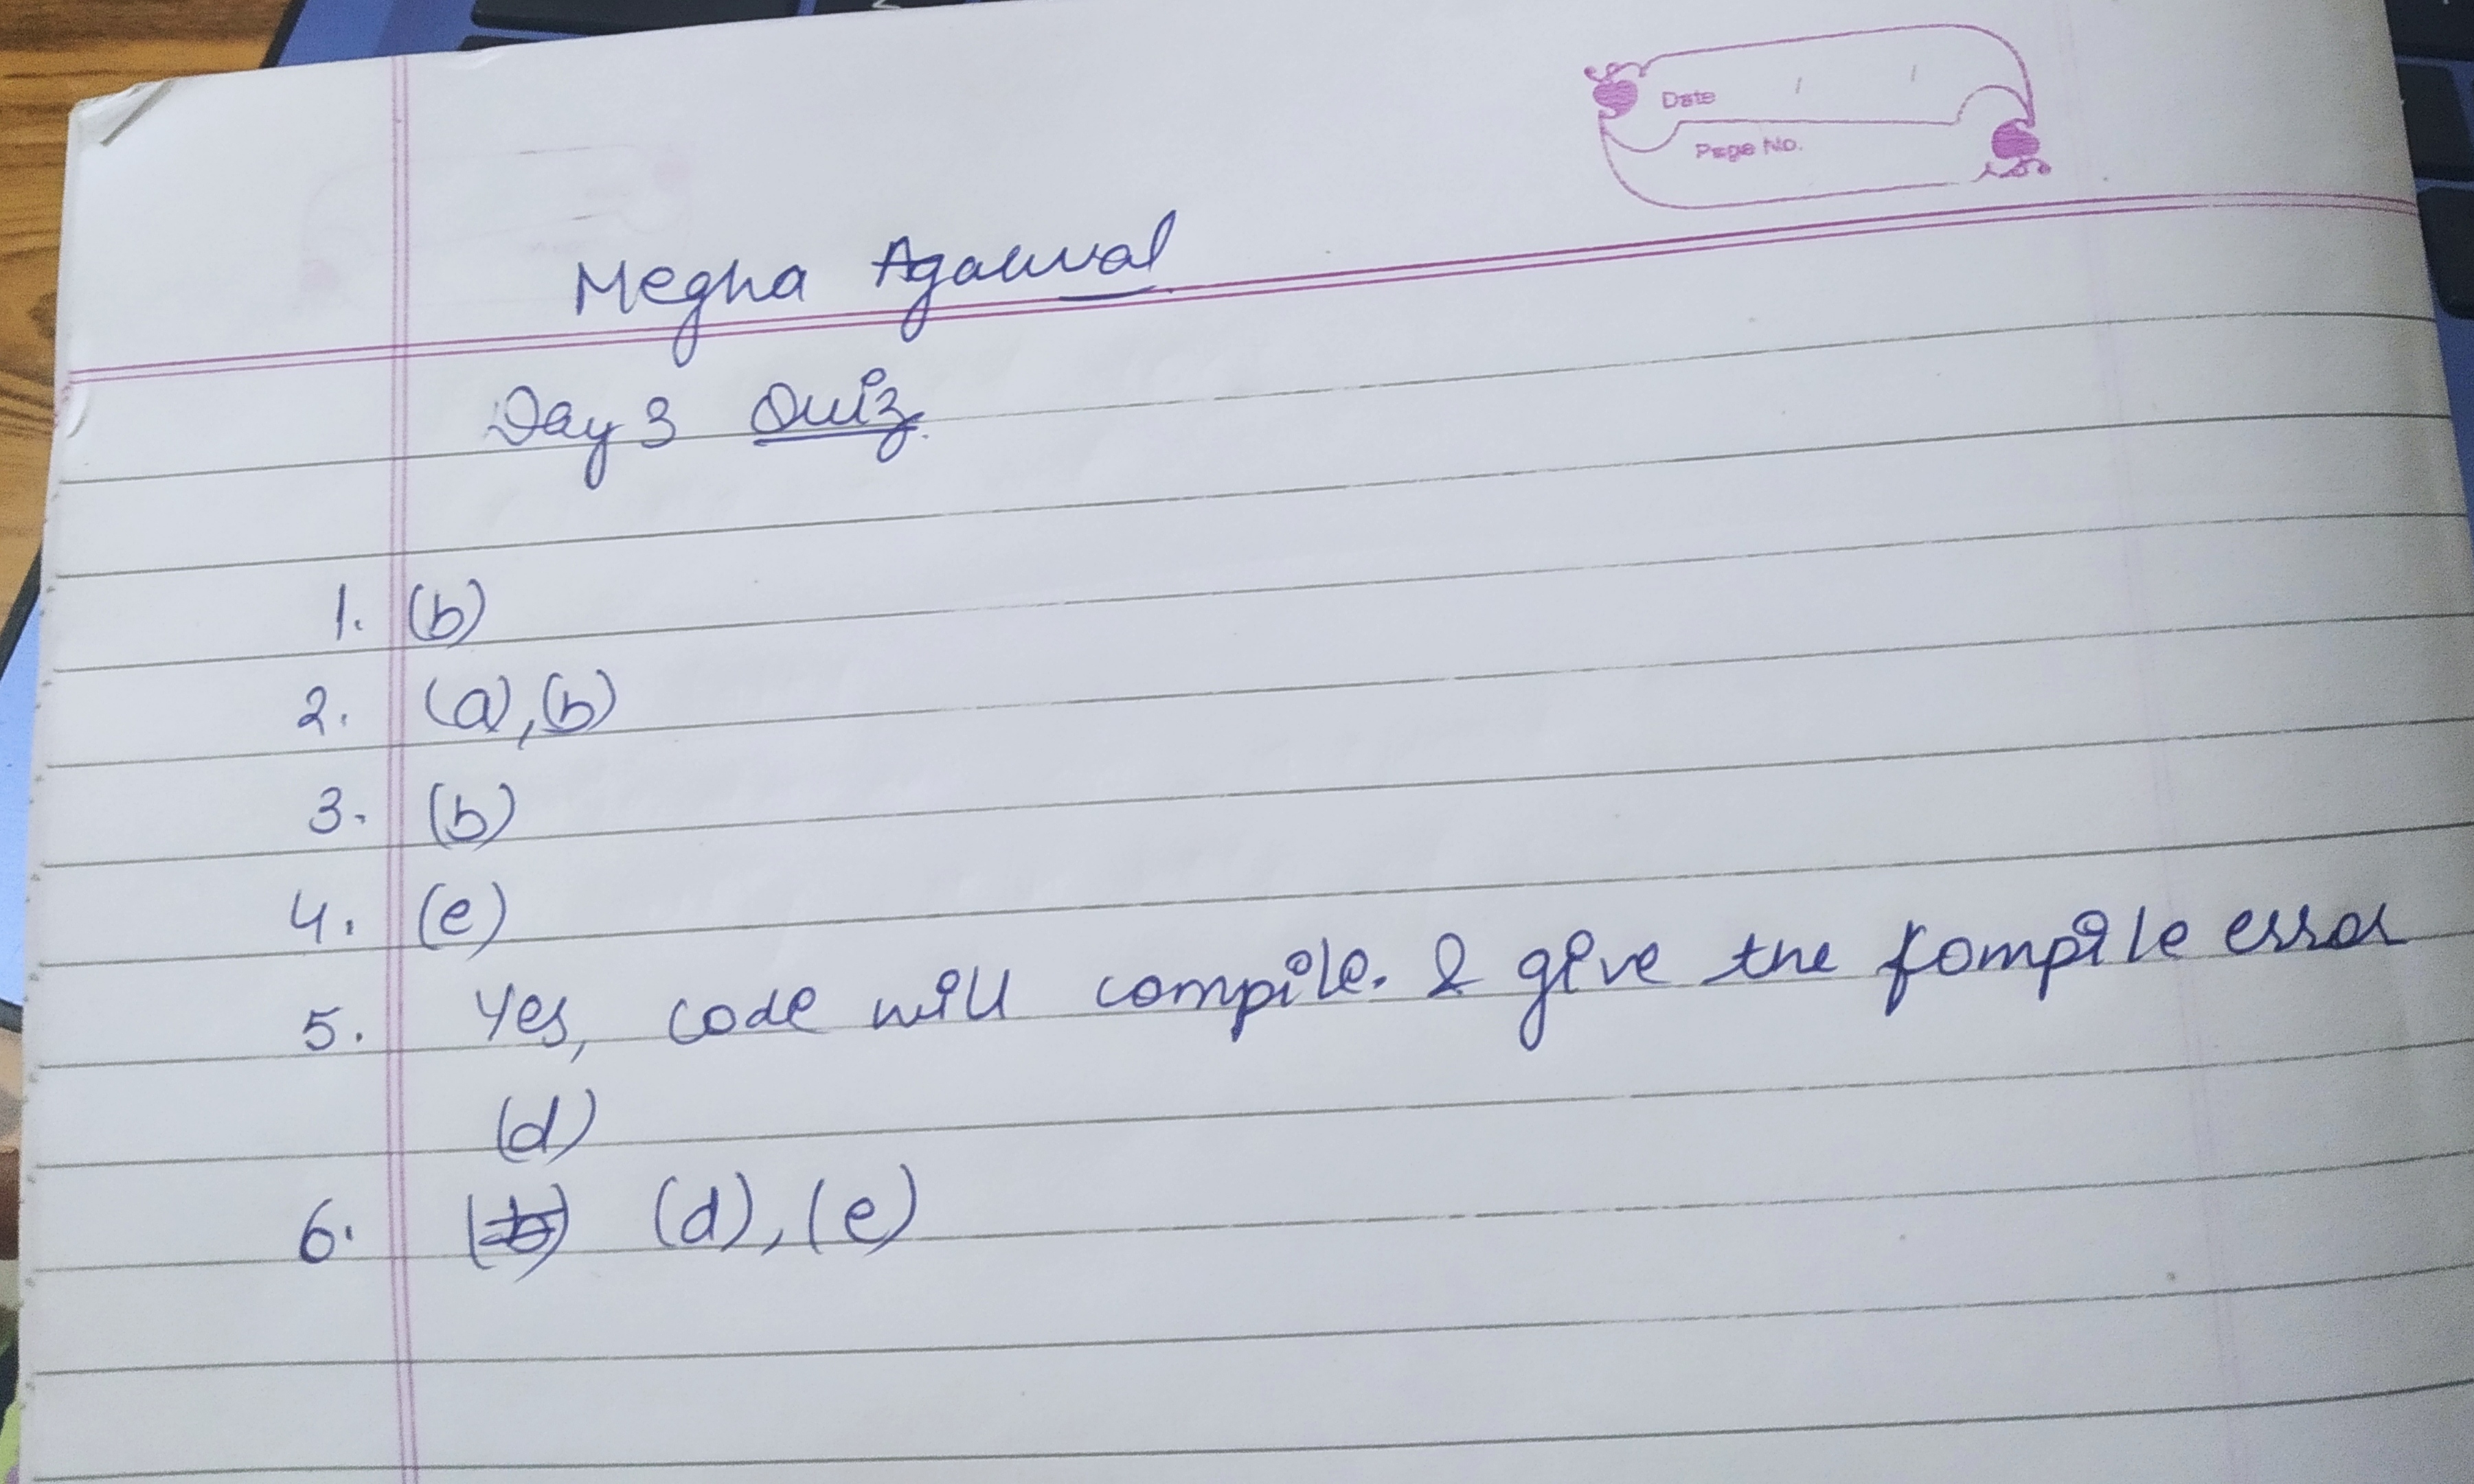 Date / /
Page No.
Megha Agarwal
Day 3 Quiz.
1. (b)
2. (a), (b)
3. (b)
4. (e)
5. Yes, code will compile. & give the compile error
(d)
6. (b) (d), (e)